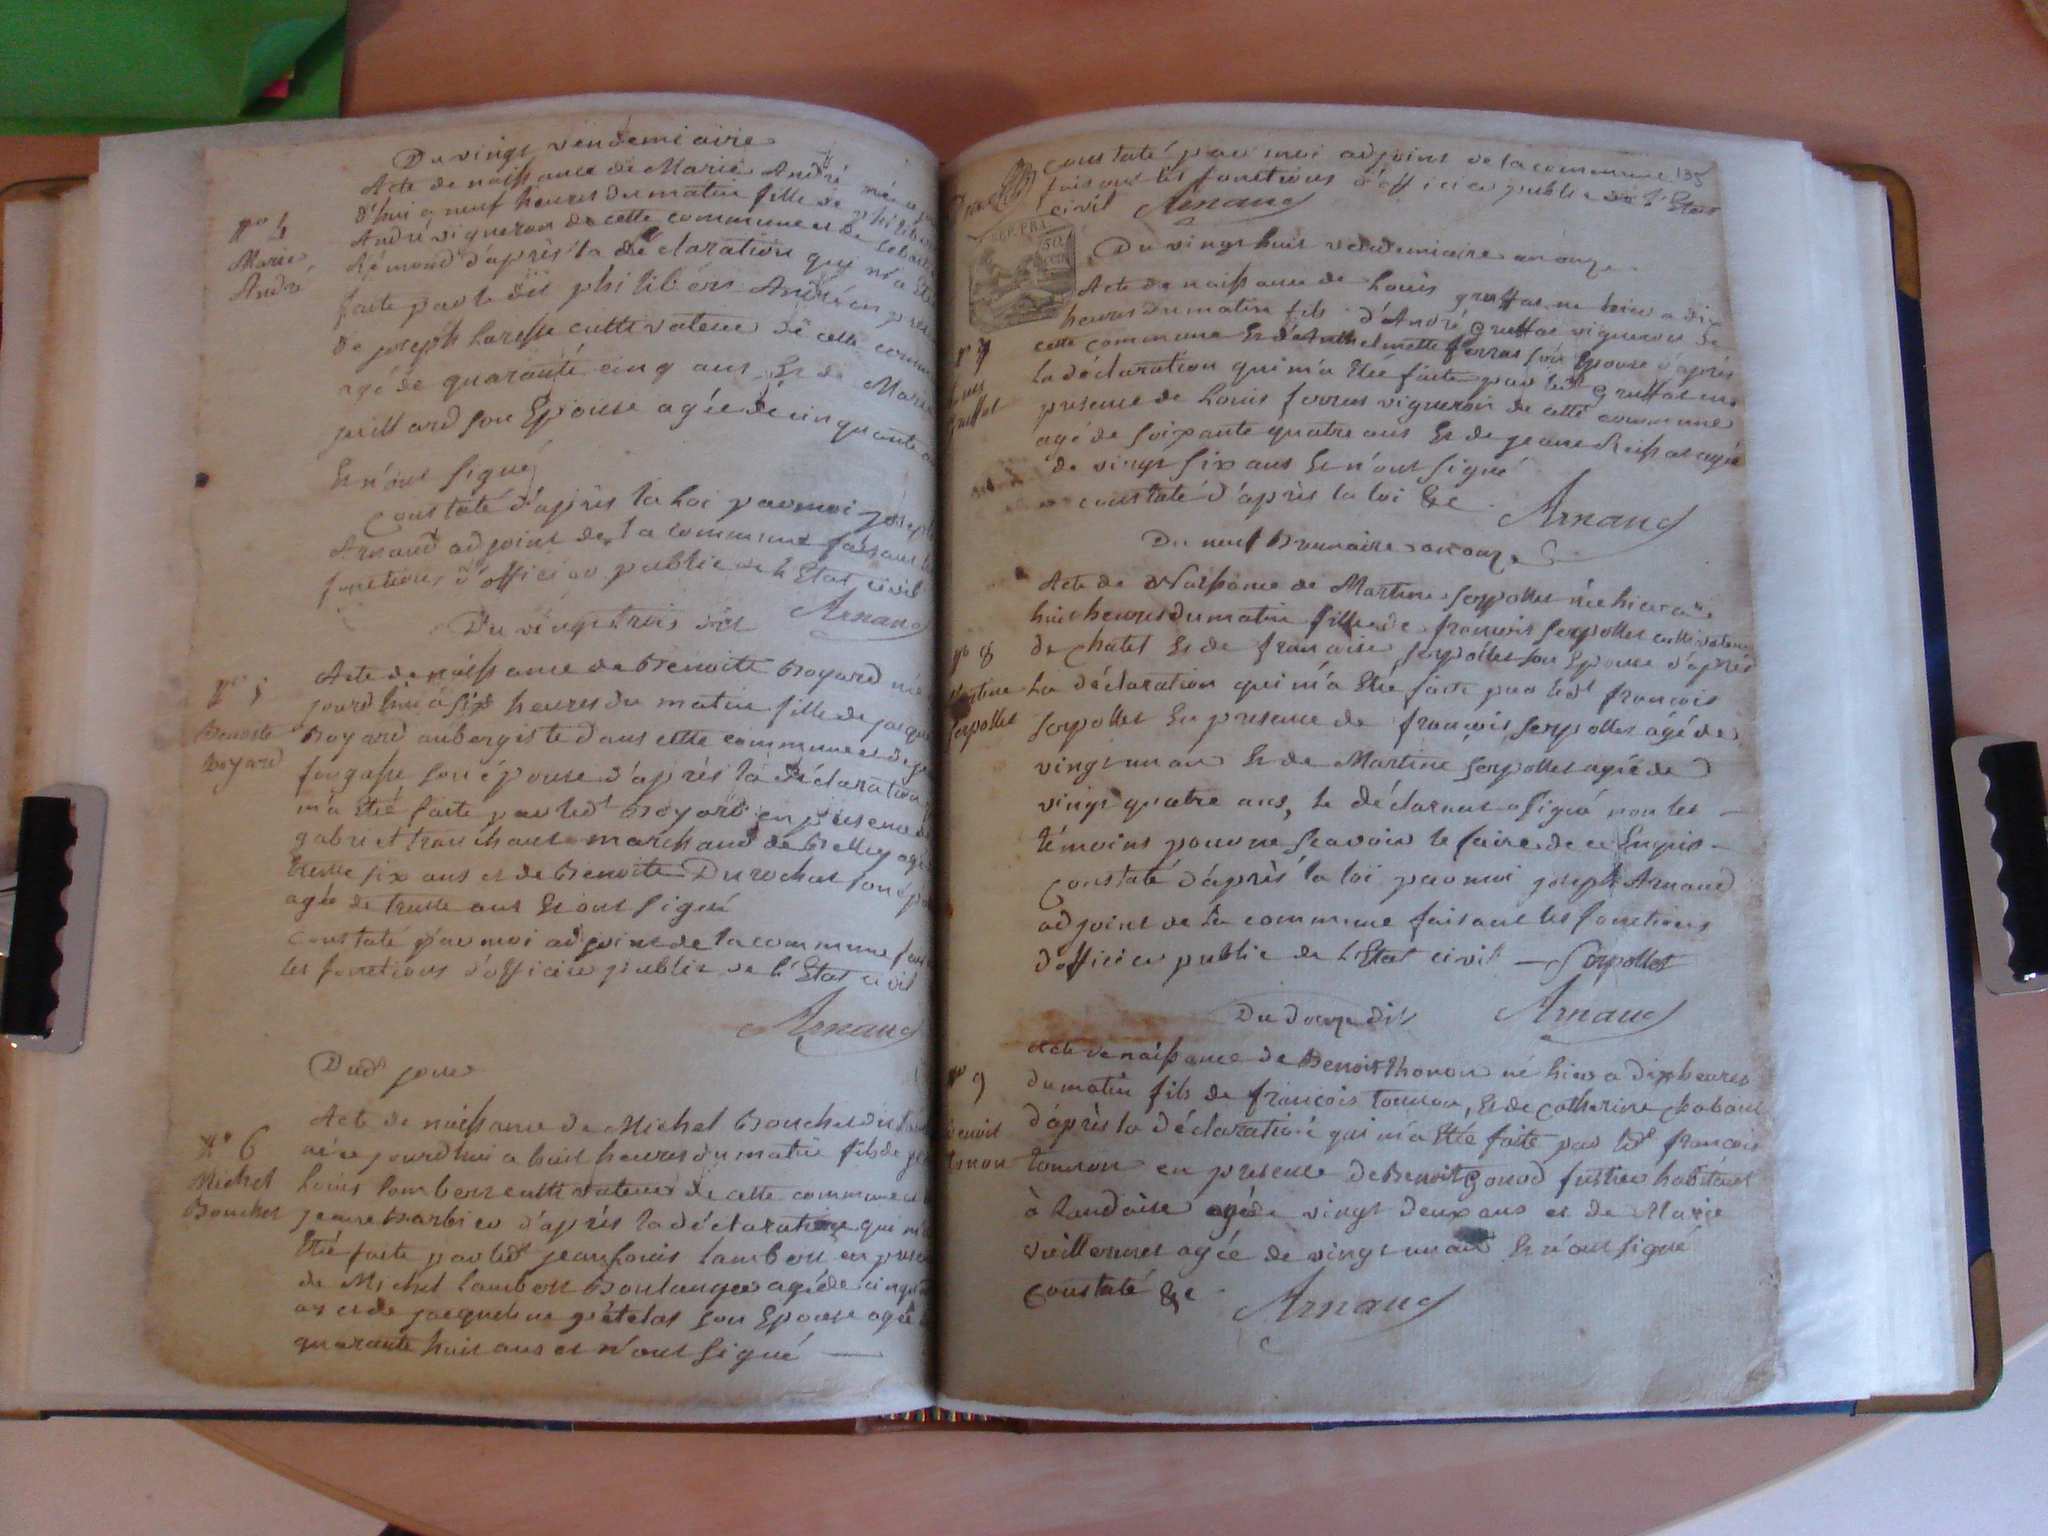 Du vingt vendemiaire
Acte de naissance de Marie André née
d'hui a neuf heures du matin fille de philibert
N° 4
André vigneron de cette commune et de
Marie
Rémond d'après la déclaration qui m'a été
André
faite par le dit philibert André en
de joseph Laresse cultivateur de cette
agé de quarante cinq ans Et de Marie
juillard son Epouse agée de cinquante
Et n'ont signé
Constaté d'après la Loi par moi joseph
Arnaud adjoint de la commune faisant
fonctions d'officier public de l'Etat civil
Arnaud
Du vingt trois
Acte de naissance de Benoite Boyard née
N° 5
jourdhui à six heures du matin fille de jacque
Benoite
Boyard aubergiste dans cette commune et de
Boyard
fongasse son épouse d'après la déclaration
m'a Eté faite par led Boyard en présence de
gabriel tranchant marchand de Belley agé
trente six ans et de Benoite Durochat son
agée de trente ans Et ont signé
Constaté par moi adjoint de la commune
les fonctions d'officier public de l'Etat civil
Arnaud
Dud jour
Acte de naissance de Michel Bouchet
N° 6
né ce jourdhui a huit heures du matin fils de
Michel
Louis Lambert cultivateur de cette commune
Bouchet
jeanne Barbier d'après la déclaration qui m'a
Eté faite par led jean Louis Lambert en
de Michel Lambert Boulanger agé de
ans et de jacqueline son Epouse agée
quarante huit ans et n'ont signé
Constaté par moi adjoint de la commune 135
faisant les fonctions d'officier public de l'Etat
civil Arnaud
REP. FRA.
50
Du vingt huit vendemiaire an onze
Acte de naissance de Louis gruffat né hier a dix
heures du matin fils d'André gruffat vigneron de
cette commune Et d'Anthelmette ferras son Epouse d'après
N° 7
La déclaration qui m'a Eté faite par led gruffat en
Louis
presence de Louis ferras vigneron de cette commune
gruffat
agé de soixante quatre ans Et de jeane agée
de vingt six ans Et n'ont signé
constaté d'après la loi &c
Arnaud
Du neuf Brumaire an onze
Acte de Naissance de Martine Serpollet née hier a
huit heures du matin fille de francois Serpollet cultivateur
N° 8
de chatel Et de francoise Serpollet son Epouse d'après
Martine
La déclaration qui m'a Eté faite par led francois
Serpollet
Serpollet En presence de francois Serpollet agé de
vingt un an Et de Martine Serpollet agée de
vingt quatre ans, Le déclarant a signé non les
témoins pour ne scavoir le faire de ce Enquis
Constaté d'après la loi par moi joseph Arnaud
adjoint de la commune faisant les fonctions
d'officier public de l'Etat civil Serpollet
Arnaud
Du douze dit
Acte de naissance de Benoit thonon né hier a dix heures
N° 9
du matin fils de francois tounon, Et de Catherine
Benoit
d'après la déclaration qui m'a Eté faite par led francois
tonon
tounon en presence de Benoit gonod fustier habitant
à Landaise agé de vingt deux ans et de Marie
vuillermet agée de vingt un an Et n'ont signé
Constaté &c
Arnaud